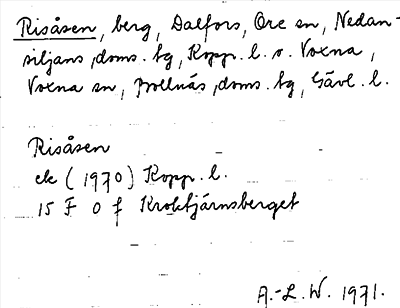 Risåsen, berg, Dalfors, Ore sn, Nedan-
siljans doms. tg, Kopp. l. o. Voxna,
Voxna sn, Bollnäs doms. tg, Gävl. l.
Risåsen
ek (1970) Kopp. l.
15 F 0 f Kroktjärnsberget
A.-L. W. 1971.